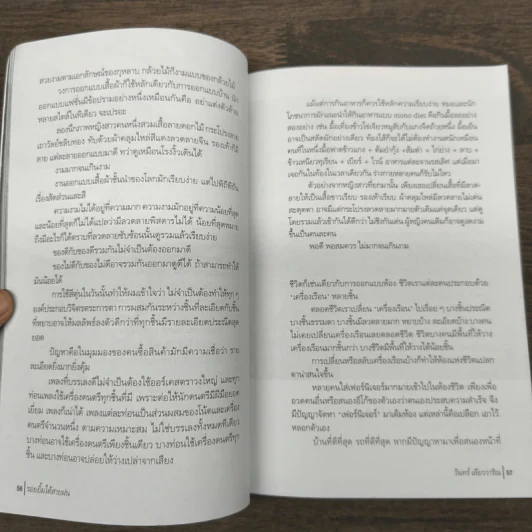 สวยงามตามเอกลักษณ์ของกุหลาบ กล้วยไม้ก็งามแบบของกล้วยไม้
วงการออกแบบเสื้อผ้าก็เช่นเดียวกับการออกแบบบ้าน นัก
ออกแบบแฟชั่นมีข้อปรามอย่างหนึ่งเหมือนกันคือ อย่าแต่งตัวด้วย
หลายสไตล์ในทีเดียว จะเปรอะ
ลองนึกภาพหญิงสาวคนหนึ่งสวมเสื้อลายดอกไม้ กระโปรงลาย
เถาวัลย์ขลิบทอง ทับด้วยผ้าคลุมไหล่สีแดงลวดลายจีน รองเท้าก็มี
ลาย แต่ละลายออกแบบมาดี ทว่าดูเหมือนโรงงิ้วเดินได้
งามมากจนเกินงาม
งานออกแบบเสื้อผ้าชั้นนำของโลกมักเรียบง่าย แต่ไปพิถีพิถัน
เรื่องสัดส่วนและสี
ความงามไม่ได้อยู่ที่ความมาก ความงามมักอยู่ที่ความน้อยที่สุด
และน้อยที่สุดก็ไม่ได้แปลว่ามีลวดลายพิสดารไม่ได้ น้อยที่สุดหมาย
ถึงมีอะไรก็ได้ตราบที่ลวดลายซับซ้อนนั้นดูรวมแล้วเรียบง่าย
ของดีกับของดีรวมกันไม่จำเป็นต้องออกมาดี
ของไม่ดีกับของไม่ดีอาจรวมกันออกมาดูดีได้ ถ้าสามารถทำให้
มันน้อยได้
การใช้สีตุ่นในวันนั้นทำให้ผมเข้าใจว่า ไม่จำเป็นต้องทำให้ทุก ๆ
องค์ประกอบวิจิตรตระการตา การผสมกันระหว่างชิ้นที่ละเอียดกับชิ้น
ที่หยาบอาจให้ผลลัพธ์ลงตัวดีกว่าที่ทุกชิ้นมีรายละเอียดประณีตสุด
ยอด
ปัญหาคือในมุมมองของคนซื้อสินค้ามักมีความเชื่อว่า ราย
ละเอียดยิ่งมากยิ่งคุ้ม
เพลงที่บรรเลงดีไม่จำเป็นต้องใช้ออร์เคสตราวงใหญ่ และทุก
ท่อนเพลงใช้เครื่องดนตรีทุกชิ้นที่มี เพราะต่อให้นักดนตรีมีฝีมือยอด
เยี่ยม เพลงก็เน่าได้ เพลงแต่ละท่อนเป็นส่วนผสมของโน้ตและเครื่อง
ดนตรีจำนวนหนึ่ง ตามความเหมาะสม ไม่ใช่บรรเลงทั้งหมดทีเดียว
บางท่อนอาจใช้เครื่องดนตรีเพียงชิ้นเดียว บางท่อนใช้เครื่องดนตรีทุก
ชิ้น และบางท่อนอาจปล่อยให้ว่างเปล่าจากเสียง
56 รอยยิ้มใต้สายฝน
แม้แต่การกินอาหารก็ควรใช้หลักความเรียบง่าย หมอและนัก
โภชนาการมักแนะนำให้กินอาหารแบบ mono-diet คือกินมื้อละอย่าง
สองอย่าง เช่น มื้อเที่ยงข้าวไข่เจียวหมูสับกับแกงจืดถ้วยหนึ่ง มื้อเย็น
อาจเป็นสลัดผักอย่างเดียว ท้องไส้ก็จะได้ไม่ต้องทำงานหนักเหมือน
คนที่ในหนึ่งมื้อฟาดข้าวแกง + ต้มยำกุ้ง + ส้มตำ + ไก่ย่าง + ลาบ +
ข้าวเหนียวทุเรียน + เบียร์ + ไวน์ อาหารแต่ละจานรสเลิศ แต่เมื่อมา
เจอกันในท้องในเวลาเดียวกัน ร่างกายหลายคนก็รับไม่ไหว
ตัวอย่างจากหญิงสาวที่ยกมานั้น เพียงเธอเปลี่ยนเสื้อที่มีลวด-
ลายให้เป็นเสื้อขาวเรียบ รองเท้าเรียบ ผ้าคลุมไหล่มีลวดลายไม่เด่น
สะดุดตา อาจมีแต่กระโปรงลวดลายมากลายตัวเดิมแค่จุดเดียว แต่ดู
โดยรวมแล้วเข้ากันได้ดีกว่า ไม่ชิงกันเด่น ผู้หญิงคนเดิมก็อาจดูงดงาม
ขึ้นเป็นคนละคน
พอดี พอสมควร ไม่มากจนเกินงาม
ชีวิตก็เช่นเดียวกับการออกแบบห้อง ชีวิตเราแต่ละคนประกอบด้วย
‘เครื่องเรือน’ หลายชิ้น
ตลอดชีวิตเราเปลี่ยน ‘เครื่องเรือน’ ไปเรื่อย ๆ บางชิ้นประณีต
บางชิ้นธรรมดา บางชิ้นมีลวดลายมาก หยาบบ้าง ละเอียดบ้าง บางคน
ไม่เคยเปลี่ยนเครื่องเรือนเลยตลอดชีวิต ชีวิตบางคนมีพื้นที่ให้วาง
เครื่องเรือนมากชิ้นกว่า บางชีวิตมีพื้นที่ให้วางได้น้อยชิ้น
การเปลี่ยนหรือสลับเครื่องเรือนบ้างก็ทำให้ห้องแห่งชีวิตแปลก
ตาน่าสนใจขึ้น
หลายคนใส่เฟอร์นิเจอร์มากมายเข้าไปในห้องชีวิต เพียงเพื่อ
อวดคนอื่นหรือสนองอีโก้ของตัวเองว่าตนเองประสบความสำเร็จ จึง
มีปัญญาจัดหา ‘เฟอร์นิเจอร์’ มาเต็มห้อง แต่เหล่านี้คือเปลือก เอาไว้
หลอกตัวเอง
บ้านที่ดีที่สุด รถที่ดีที่สุด หากมีปัญหามาเพื่อสนองหน้าที่
วินทร์ เลียววาริณ 57